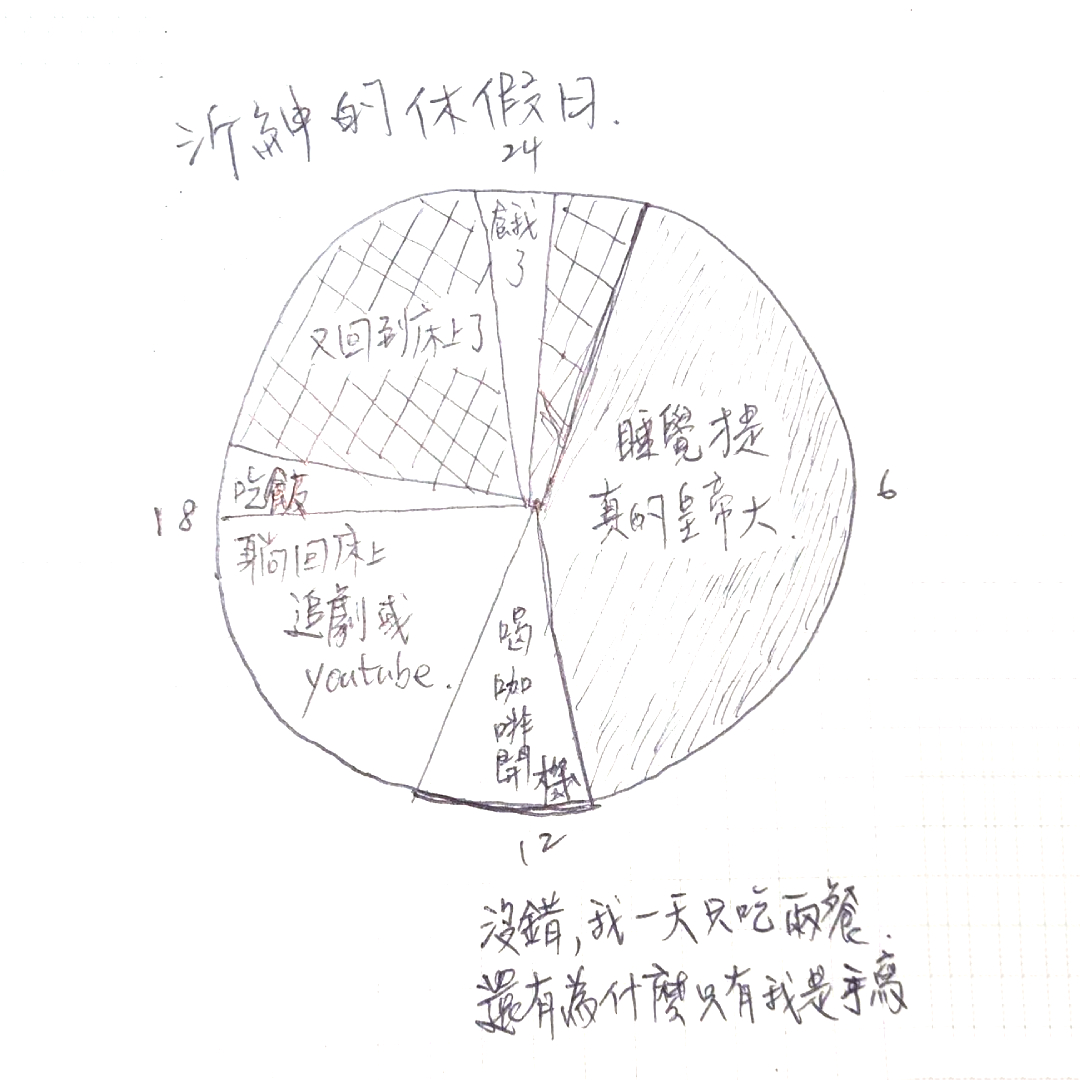 沂紳的休假日.
24
餓我
了
又回到床上了
睡覺才是
真的皇帝大.
6
吃飯
18
躺回床上
追劇或
youtube.
喝
咖
啡
開機
12
沒錯,我一天只吃兩餐.
還有為什麼只有我是手寫